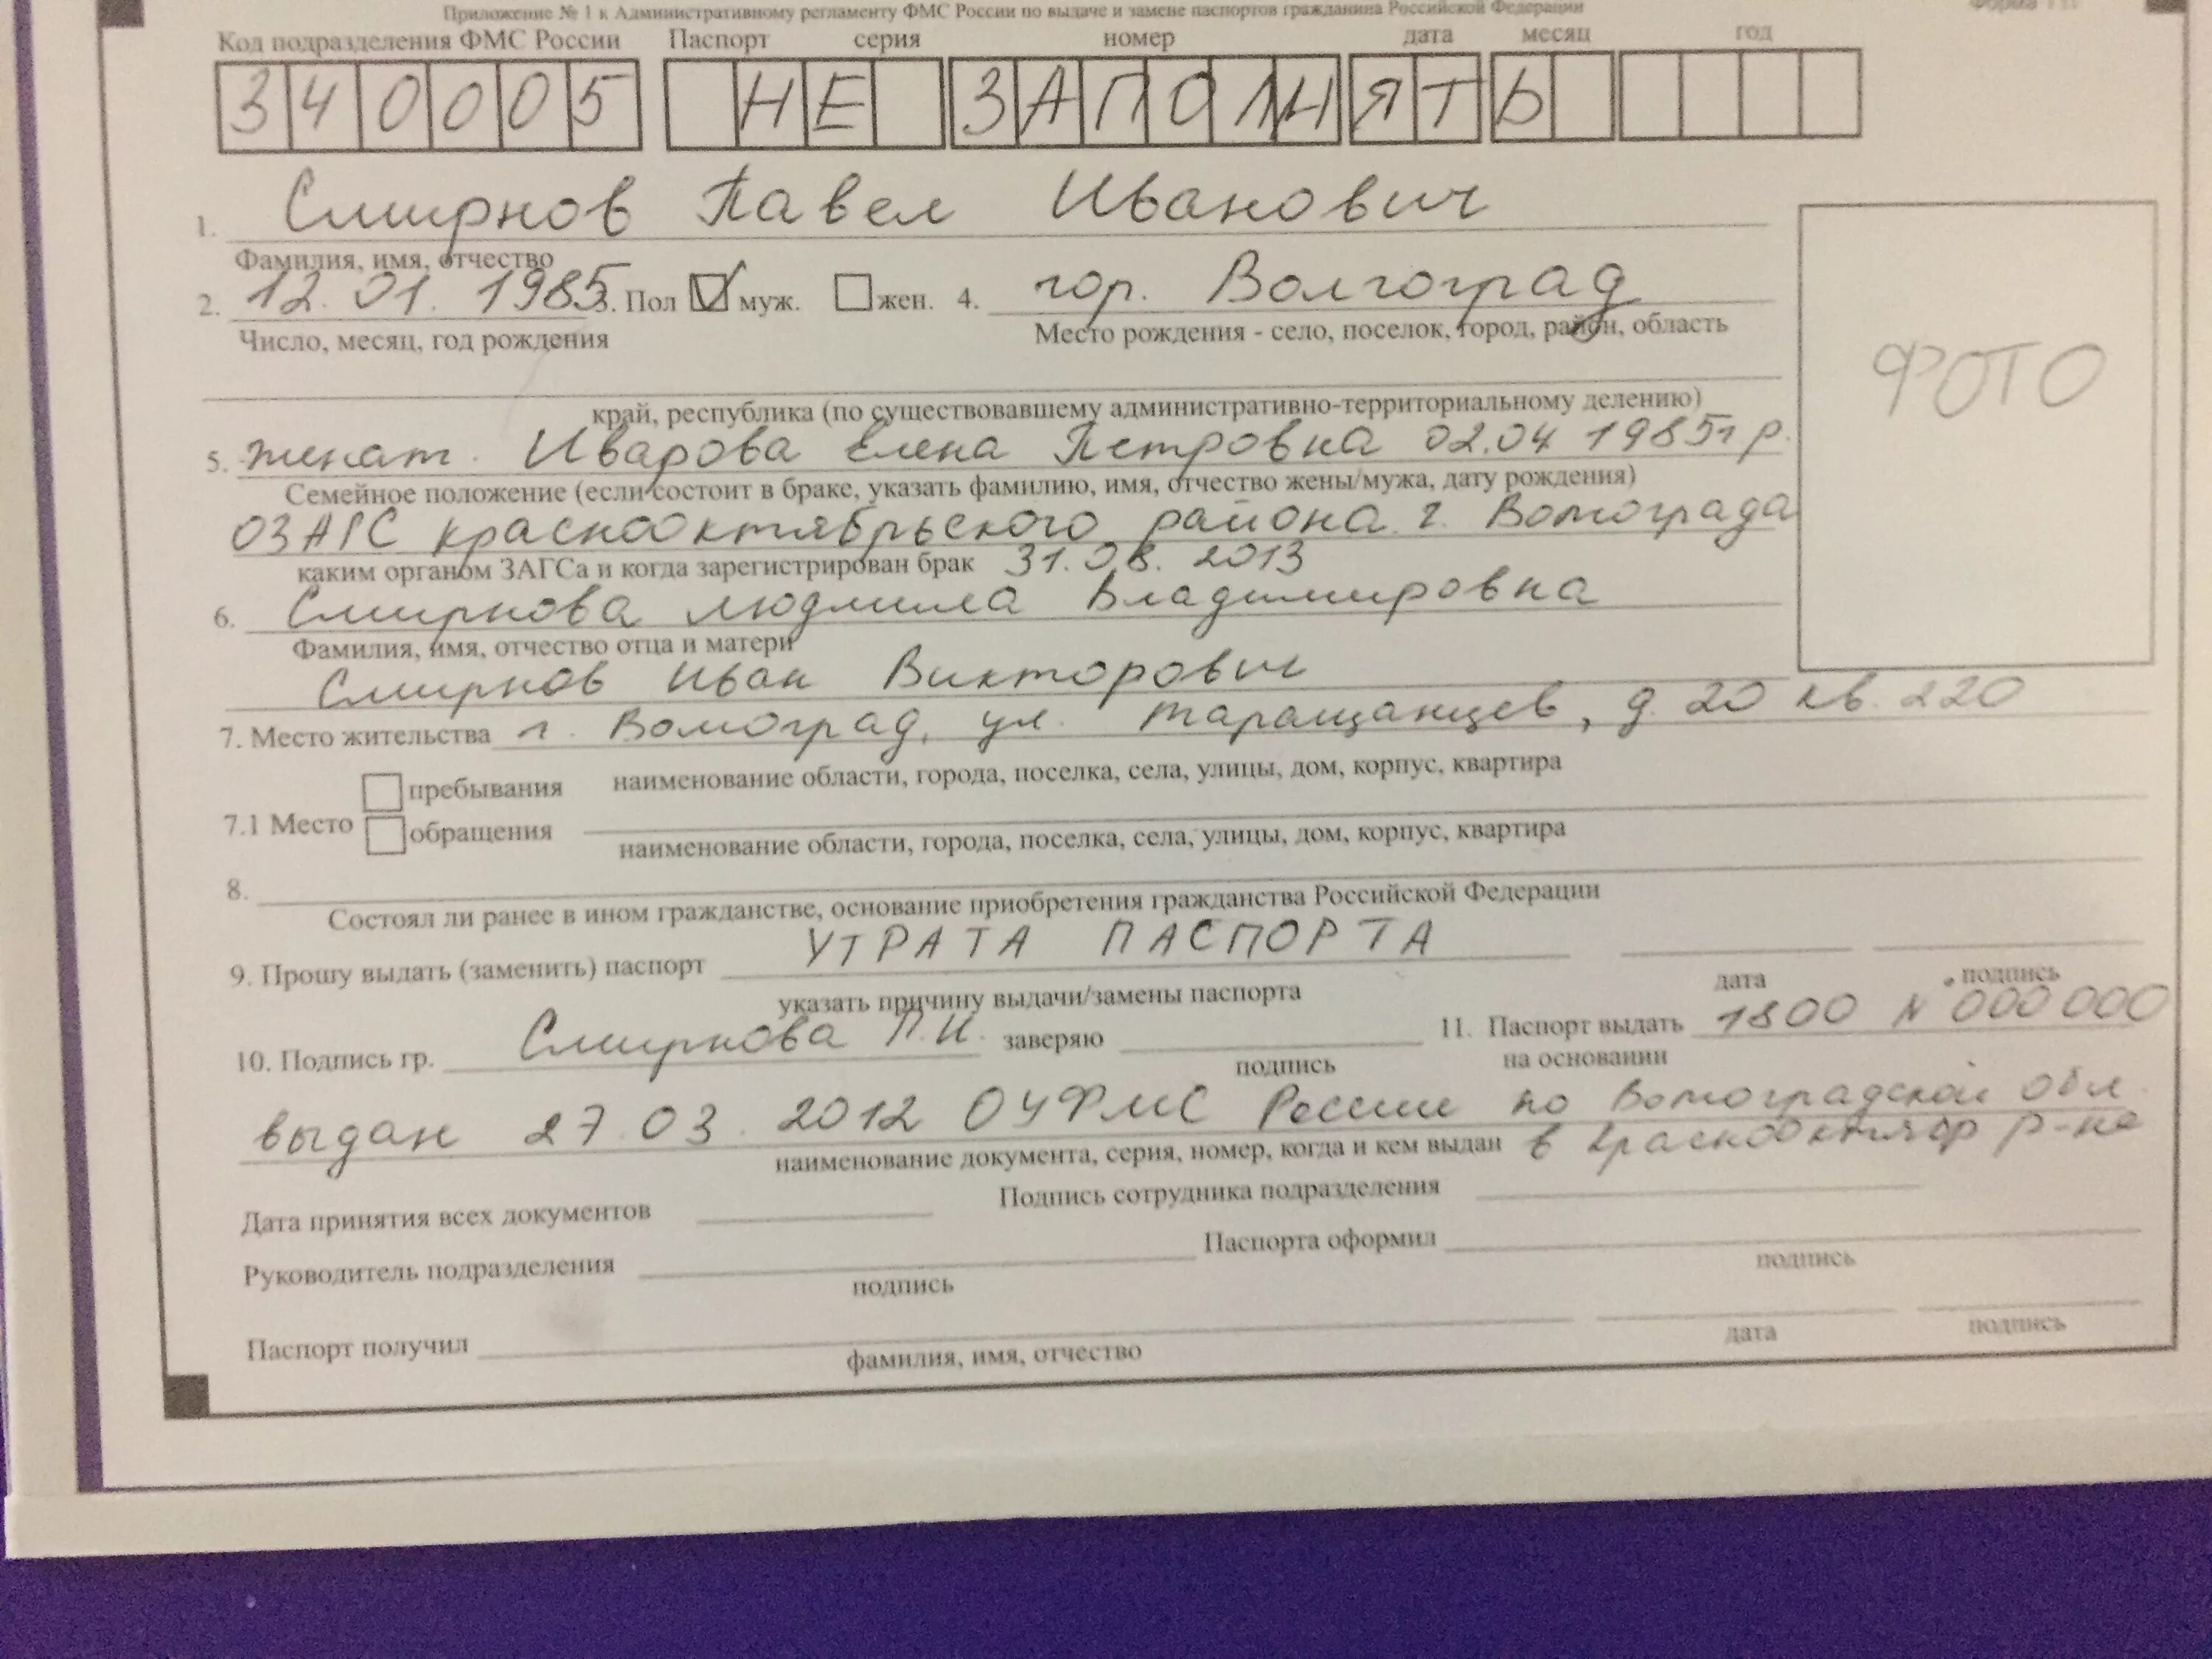 Приложение № 1 к Административному регламенту ФМС России по выдаче и замене паспортов гражданина Российской Федерации
Код подразделения ФМС России Паспорт серия номер дата месяц год
340005 НЕ ЗАПОЛНЯТЬ
1. Смирнов Павел Иванович
Фамилия, имя, отчество
2. 12. 01. 1985 3. Пол муж. жен. 4. гор. Волгоград
Число, месяц, год рождения Место рождения - село, поселок, город, район, область
ФОТО
край, республика (по существовавшему административно-территориальному делению)
5. женат. Иварова Елена Петровна 02.04 1985г р.
Семейное положение (если состоит в браке, указать фамилию, имя, отчество жены/мужа, дату рождения)
ОЗАГС краснооктябрьского района г. Волгограда
каким органом ЗАГСа и когда зарегистрирован брак 31.08.2013
6. Смирнова Людмила Владимировна
Фамилия, имя, отчество отца и матери
Смирнов Иван Викторович
7. Место жительства г. Волгоград, ул. Таращанцев, д. 20 кв. 220
наименование области, города, поселка, села, улицы, дом, корпус, квартира
7.1 Место пребывания
обращения
наименование области, города, поселка, села, улицы, дом, корпус, квартира
8.
Состоял ли ранее в ином гражданстве, основание приобретения гражданства Российской Федерации
9. Прошу выдать (заменить) паспорт УТРАТА ПАСПОРТА
указать причину выдачи/замены паспорта дата подпись
10. Подпись гр. Смирнова П.И. заверяю 11. Паспорт выдать 1800 N 000 000
подпись на основании
выдан 27.03.2012 ОУФМС России по Волгоградской обл.
наименование документа, серия, номер, когда и кем выдан в Краснооктябр р-не
Дата принятия всех документов Подпись сотрудника подразделения
Руководитель подразделения Паспорта оформил
подпись подпись
Паспорт получил
фамилия, имя, отчество дата подпись